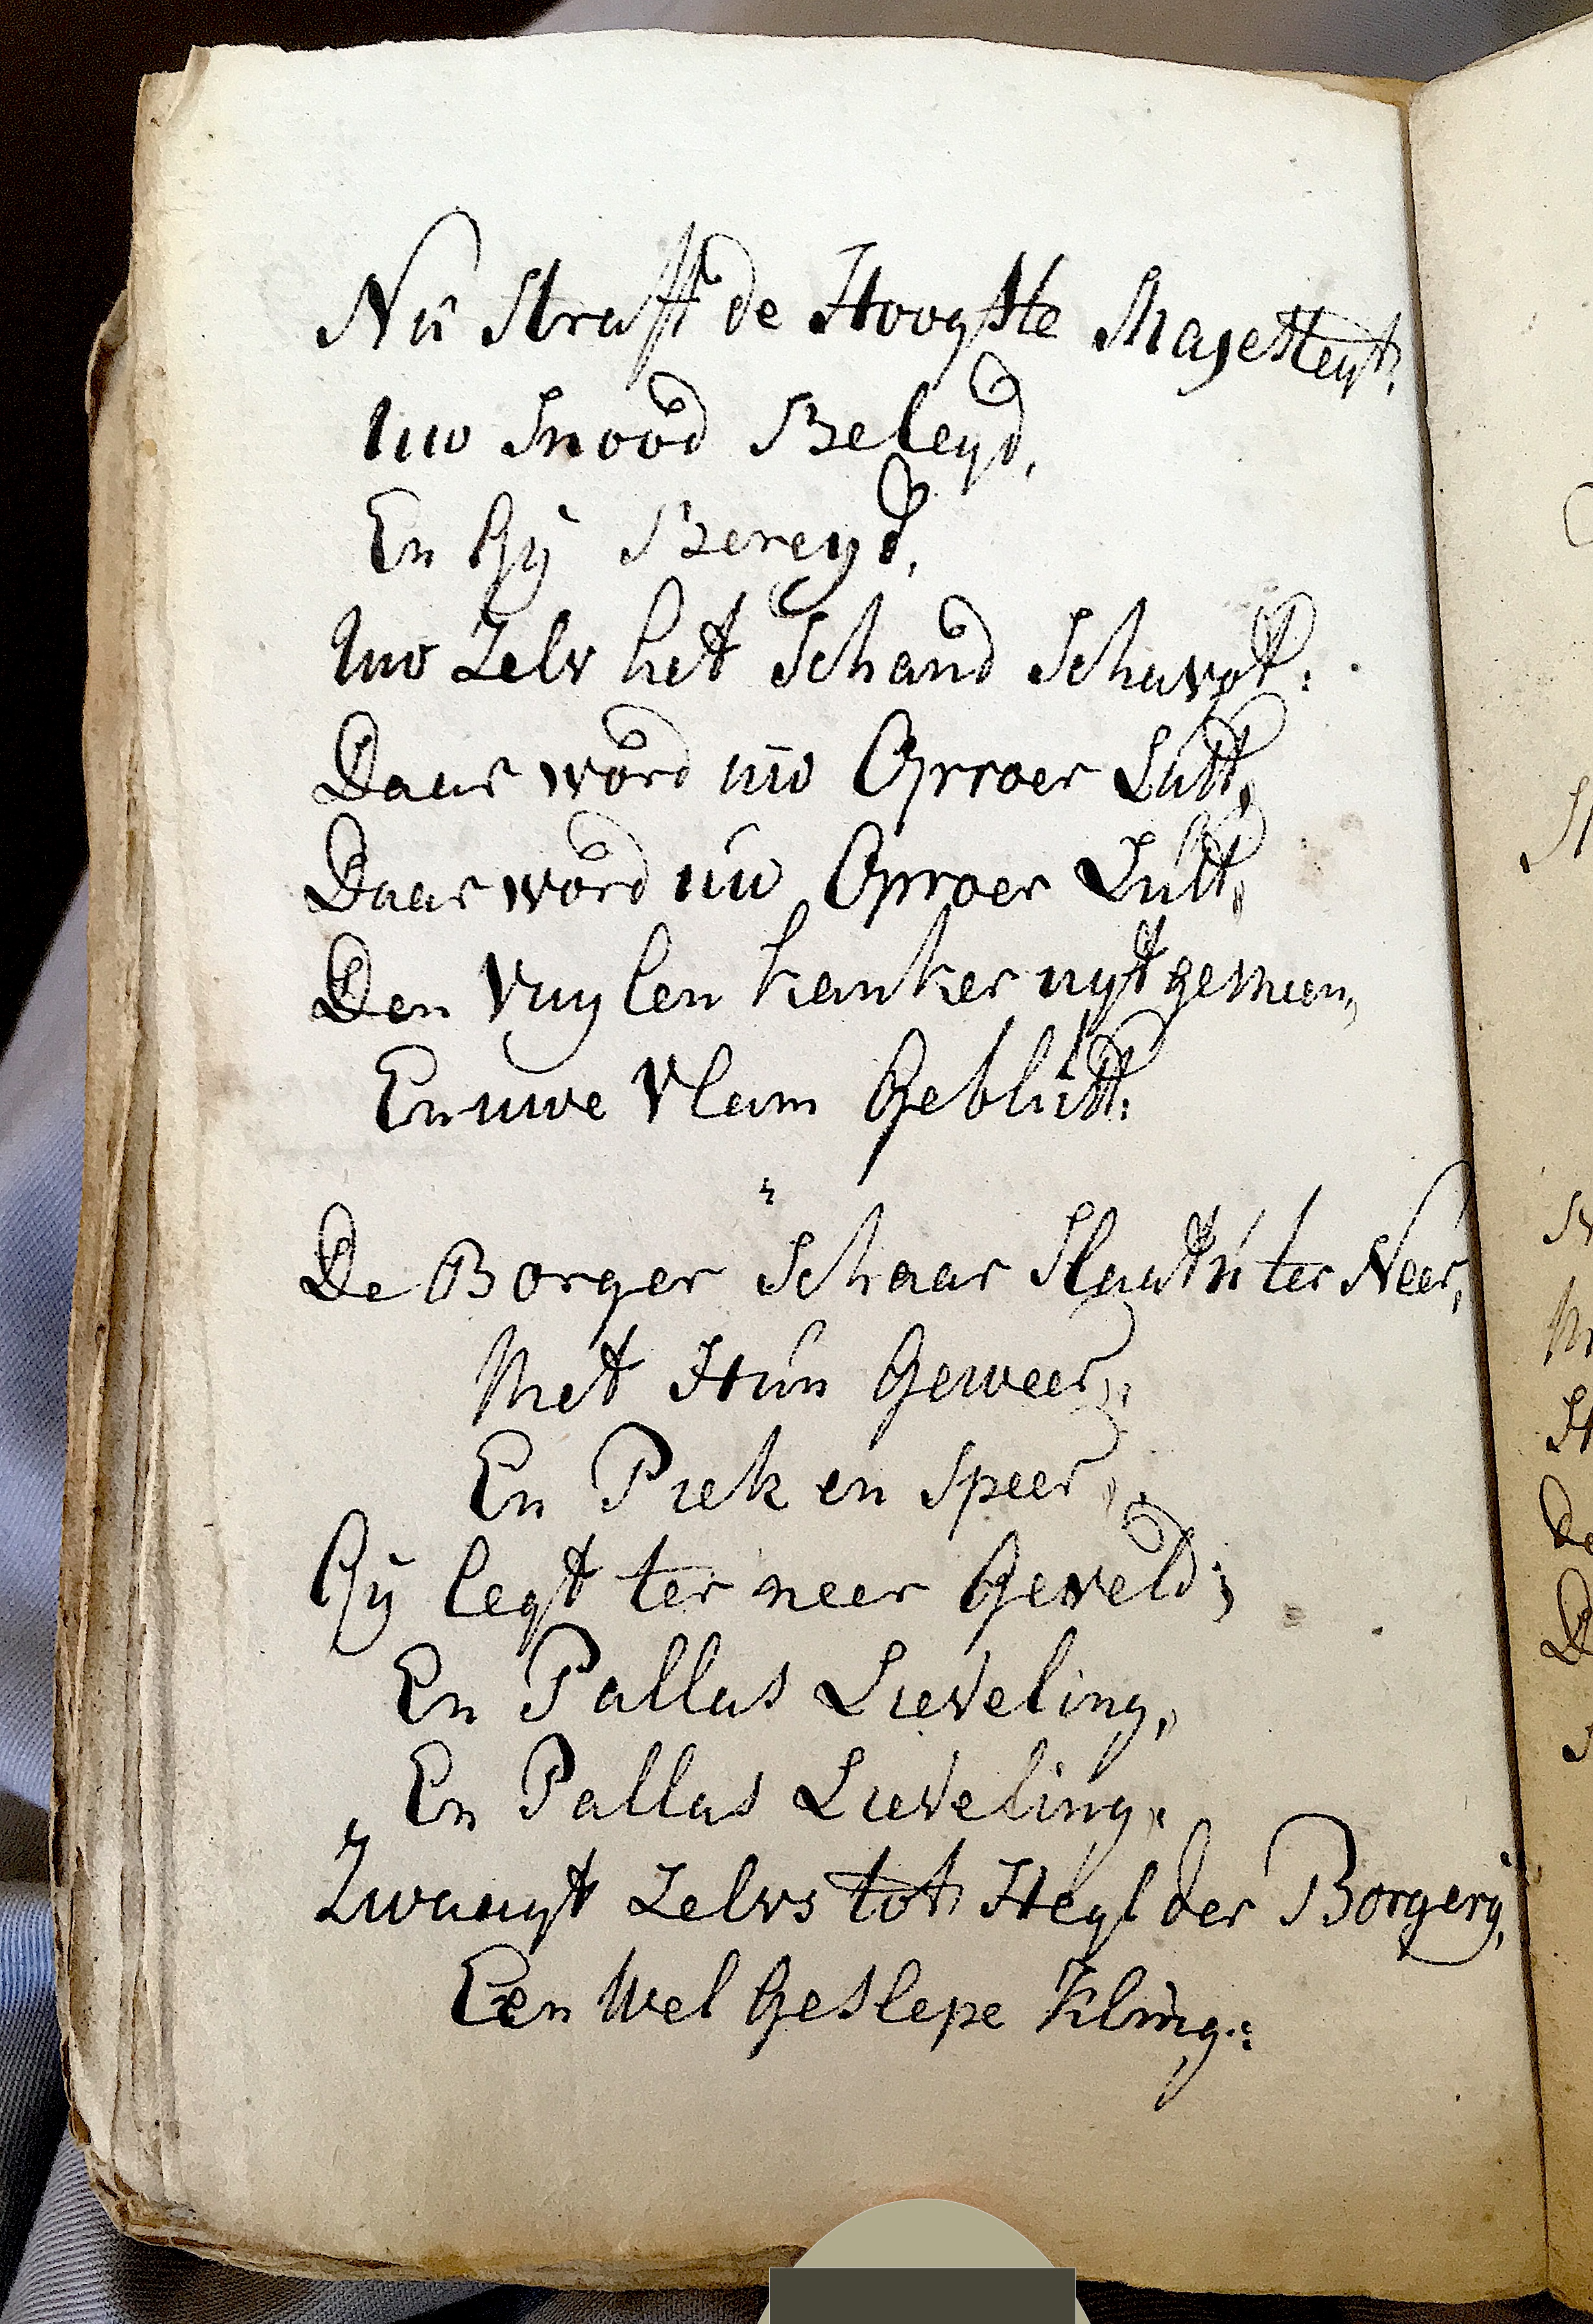 Nu Straft de Hoogste Majesteyt,
Uw Snood Beleyd,
En Gij Bereyd,
Uw Zelv het Schand Schavot:
Daar word uw Oproer Lust,
Daar word uw Oproer Lust,
Den Vuylen kanker uyt
En uwe Vlam Geblust.
2
De Borger Schaar Slaat u ter Neer,
Met Hun Geweer,
En Piek en Speer,
Gij legt ter neer Geveld;
En Pallas Lieveling,
En Pallas Lieveling,
Zwaayt Zelvs tot Heyl der Borgerij,
Een Wel Geslepe Kling.